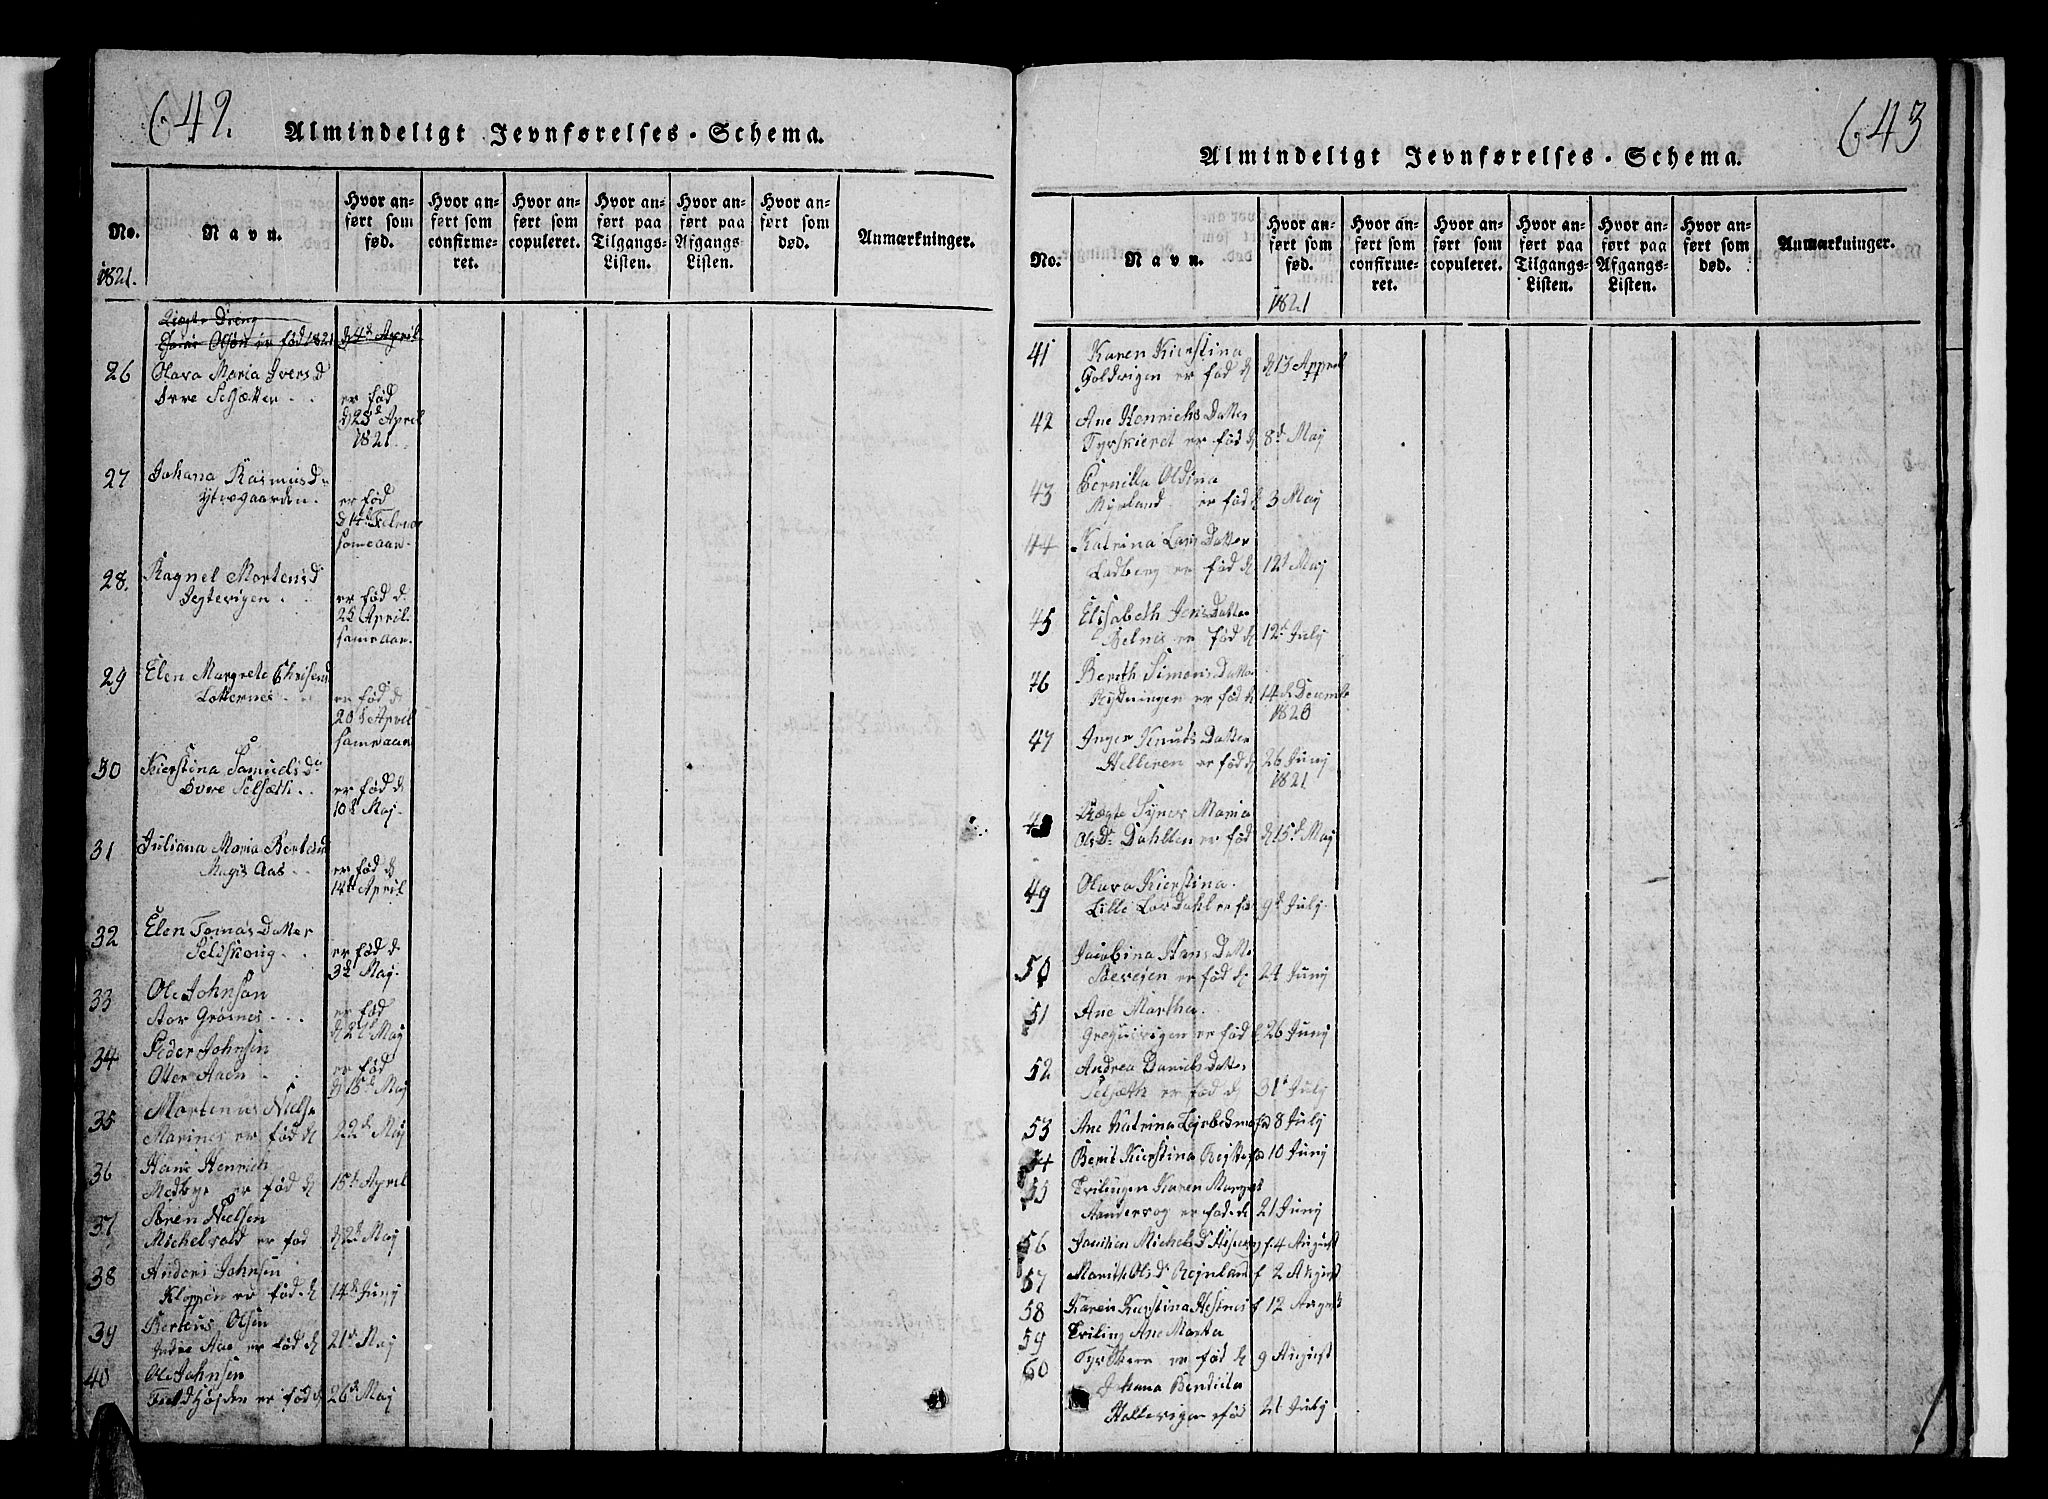 642.
Almindeligt Jevnførelses-Schema.
No.
Navn.
Hvor an-
ført som
fød.
Hvor an-
ført som
confirme-
ret.
Hvor an-
ført som
copuleret.
Hvor an-
ført paa
Tilgangs-
Listen.
Hvor an-
ført paa
Afgangs-
Listen.
Hvor an-
ført som
død.
Anmærkninger.
1821.
Olsøn er fød 1821 d 4de April
26 Olava Maria Ivers D
Øvre Seljætter . . er fød
d 25d April
1821.
27 Johana Rasmus Dr
Ytregaarden . er fød
d 14d Februar
samme aar.
28. Ragnel Mortens d
Jegtevigen . . er fød d.
25 April
samme aar.
29 Elen Margrete Chrisens d
Lotternes . . er fød d
20d April
samme aar
30 Kierstina Samuels dr
Øvre Seljæth . . er fød d
10d Maj.
31 Juliana Maria Berteus d
Magis Aas . . er fød d
14d April
32 Elen Tomas Datter
Seldskoug . . er fød d
3d Maj.
33 Ole Johnsøn
Stor Grøsnes . . . er fød
d 2d Maj
34 Peder Johnsen
Otter Aaen . er fød
d 15d Maj
35 Mortenus Nielse
Marines er fød d 22d Maj
36 Hans Henrich
Medbye er fød d 15d April
37 Søren Nielsen
Michelvold er fød d 2d Maj
38 Anders Johnsen
Kloppen er fød d 14d Junj
39 Berteus Olsen
Indre Aae er fød d 21d Maj
40 Ole Johnsen
er fød d 26d Maj
643
Almindeligt Jevnførelses-Schema.
No.
Navn.
Hvor an-
ført som
fød.
1821
Hvor an-
ført som
confirme-
ret.
Hvor an-
ført som
copuleret.
Hvor an-
ført paa
Tilgangs-
Listen.
Hvor an-
ført paa
Afgangs-
Listen.
Hvor an-
ført som
død.
Anmærkninger.
41 Karen Kierstina
Goldvigen er fød d 13 Appril
42 Ane Henrichs Datter
Tyrskieret er fød d 8d Maj
43 Pernilla Oldina
Myrland er fød d 3 Maj
44 Katrina Lars Datter
Ladberg er fød d 12d Maj
45 Elisabeth Jens Datter
Belnes er fød d 12d Julj
46 Bereth Simons Datter
Rydningen er fød d 14d Decemb
1820
47 Inger Knuds Datter
Helleren er fød d 26 Junj
1821
48 Uægte Synev Maria
Ols Dr Dahllen er fød d 15d Maj
49 Olava Kierstina.
Lille Lørdahl er fø 9d Julj
50 Jacobina Hans Datte
er fød d 24 Junj
51 Ane Martha.
er fød d 26 Junj
52 Andrea Daniels Datter
Seljæth er fød d 31d Julj
53 Ane Katrina fød 8 Julj
54 Berit Kierstina fød 10 Junj
55 Tvilingen Karen Margret
Aandervog er fød d 21 Junj
56 Michels D f. 4 August
57 Marith Ols D Rejnland f 2 August
58 Karen Kierstina Hesnes f 12 August
59 Tviling Ane Marta
60 Tyrskier er fød d 9 August
Johana Bendicta
Hallevigen fød 21 Julj